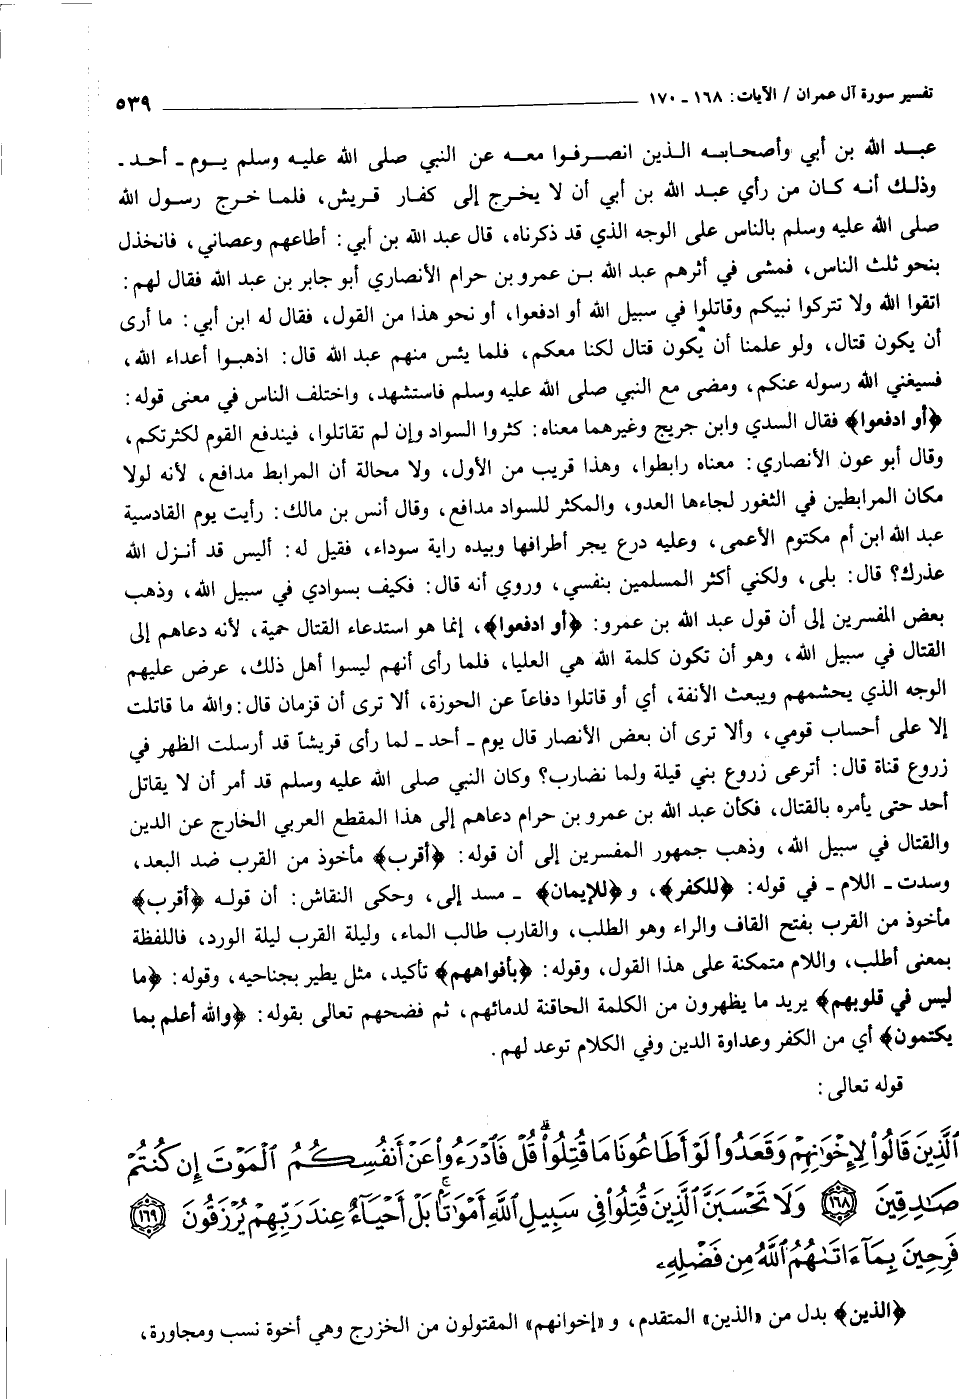 تفسير سورة آل عمران / الآيات: ١٦٨ - ١٧٠ ٥٣٩
عبـد الله بن أبي وأصحابـه الـذين انصـرفـوا معـه عن النبي صلى الله عليـه وسلم يـوم ـ أحـد ـ
وذلـك أنـه كـان من رأي عبـد الله بن أبي أن لا يخـرج إلى كفـار قـريش، فلمـا خـرج رسـول الله
صلى الله عليه وسلم بالناس على الوجه الذي قد ذكرناه، قال عبد الله بن أبي: أطاعهم وعصاني، فانخذل
بنحو ثلث الناس، فمشى في أثرهم عبد الله بـن عمرو بن حرام الأنصاري أبو جابر بن عبد الله فقال لهم:
اتقوا الله ولا تتركوا نبيكم وقاتلوا في سبيل الله أو ادفعوا، أو نحو هذا من القول، فقال له ابن أبي: ما أرى
أن يكون قتال، ولو علمنا أن يكون قتال لكنا معكم، فلما يئس منهم عبد الله قال: اذهبـوا أعداء الله،
فسيغني الله رسوله عنكم، ومضى مع النبي صلى الله عليه وسلم فاستشهد، واختلف الناس في معنى قوله:
﴿أو ادفعوا﴾ فقال السدي وابن جريج وغيرهما معناه: كثروا السواد وإن لم تقاتلوا، فيندفع القوم لكثرتكم،
وقال أبو عون الأنصاري: معناه رابطوا، وهذا قريب من الأول، ولا محالة أن المرابط مدافع، لأنه لولا
مكان المرابطين في الثغور لجاءها العدو، والمكثر للسواد مدافع، وقال أنس بن مالك: رأيت يوم القادسية
عبد الله ابن أم مكتوم الأعمى، وعليه درع يجر أطرافها وبيده راية سوداء، فقيل له: أليس قد أنـزل الله
عذرك؟ قال: بلى، ولكني أكثر المسلمين بنفسي، وروي أنه قال: فكيف بسوادي في سبيل الله، وذهب
بعض المفسرين إلى أن قول عبد الله بن عمرو: ﴿أو ادفعوا﴾، إنما هو استدعاء القتال حمية، لأنه دعاهم إلى
القتال في سبيل الله، وهو أن تكون كلمة الله هي العليا، فلما رأى أنهم ليسوا أهل ذلك، عرض عليهم
الوجه الذي يحشمهم ويبعث الأنفة، أي أو قاتلوا دفاعاً عن الحوزة، ألا ترى أن قزمان قال: والله ما قاتلت
إلا على أحساب قومي، وألا ترى أن بعض الأنصار قال يوم ـ أحد ـ لما رأى قريشاً قد أرسلت الظهر في
زروع قناة قال: أترعى زروع بني قيلة ولما نضارب؟ وكان النبي صلى الله عليه وسلم قد أمر أن لا يقاتل
أحد حتى يأمره بالقتال، فكأن عبد الله بن عمرو بن حرام دعاهم إلى هذا المقطع العربي الخارج عن الدين
والقتال في سبيل الله، وذهب جمهور المفسرين إلى أن قوله: ﴿أقرب﴾ مأخوذ من القرب ضد البعد،
وسدت ـ اللام ـ في قوله: ﴿للكفر﴾، و﴿للإيمان﴾ ـ مسد إلى، وحكى النقاش: أن قولـه ﴿أقرب﴾
مأخوذ من القرب بفتح القاف والراء وهو الطلب، والقارب طالب الماء، وليلة القرب ليلة الورد، فاللفظة
بمعنى أطلب، واللام متمكنة على هذا القول، وقوله: ﴿بأفواههم﴾ تأكيد، مثل يطير بجناحيه، وقوله: ﴿ما
ليس في قلوبهم﴾ يريد ما يظهرون من الكلمة الحاقنة لدمائهم، ثم فضحهم تعالى بقوله: ﴿والله أعلم بما
يكتمون﴾ أي من الكفر وعداوة الدين وفي الكلام توعد لهم.
قوله تعالى:
ٱلَّذِينَ قَالُوا۟ لِإِخْوَٰنِهِمْ وَقَعَدُوا۟ لَوْ أَطَاعُونَا مَا قُتِلُوا۟ ۗ قُلْ فَٱدْرَءُوا۟ عَنْ أَنفُسِكُمُ ٱلْمَوْتَ إِن كُنتُمْ
صَٰدِقِينَ ١٦٨ وَلَا تَحْسَبَنَّ ٱلَّذِينَ قُتِلُوا۟ فِى سَبِيلِ ٱللَّهِ أَمْوَٰتًۢا ۚ بَلْ أَحْيَآءٌ عِندَ رَبِّهِمْ يُرْزَقُونَ ١٦٩
فَرِحِينَ بِمَآ ءَاتَىٰهُمُ ٱللَّهُ مِن فَضْلِهِۦ
﴿الذين﴾ بدل من «الذين» المتقدم، و«إخوانهم» المقتولون من الخزرج وهي أخوة نسب ومجاورة،